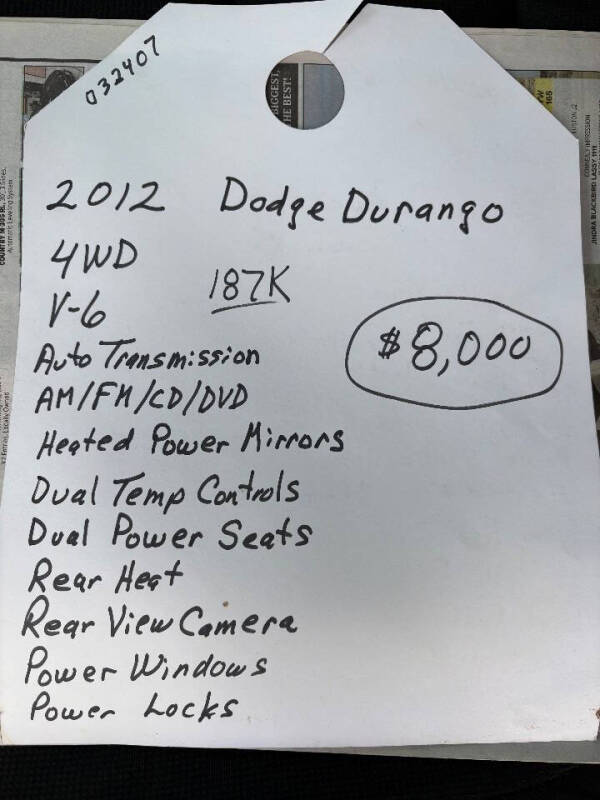 032407
BIGGEST,
HE BEST!
2012 Dodge Durango
4WD
187K
V-6
$8,000
Auto Transmission
AM/FM/CD/DVD
Heated Power Mirrors
Dual Temp Controls
Dual Power Seats
Rear Heat
Rear View Camera
Power Windows
Power Locks